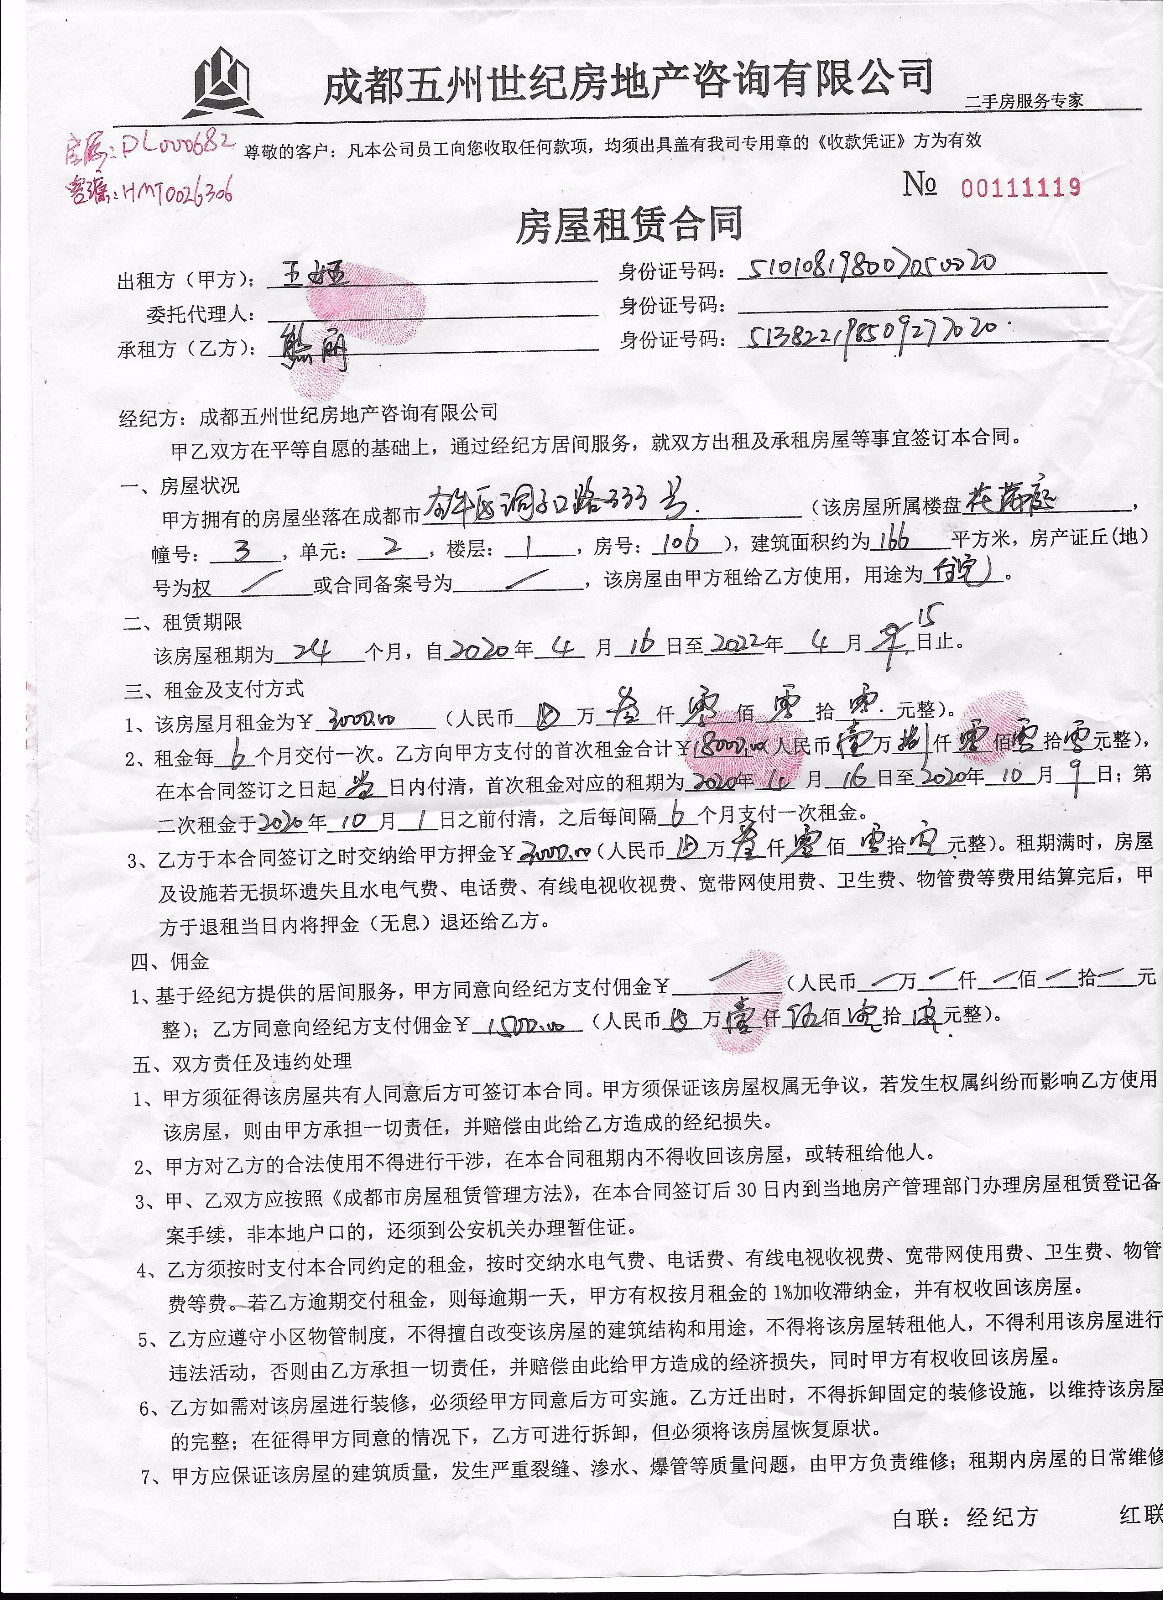 成都五州世纪房地产咨询有限公司
二手房服务专家
房源:DL000682
尊敬的客户:凡本公司员工向您收取任何款项,均须出具盖有我司专用章的《收款凭证》方为有效
客源:HMT0026306
№ 00111119
房屋租赁合同
出租方(甲方): 王 身份证号码: 510108198007050020
委托代理人: 身份证号码:
承租方(乙方): 熊丽 身份证号码: 513822198509277020
经纪方:成都五州世纪房地产咨询有限公司
甲乙双方在平等自愿的基础上,通过经纪方居间服务,就双方出租及承租房屋等事宜签订本合同。
一、房屋状况
甲方拥有的房屋坐落在成都市金牛区洞子口路333号(该房屋所属楼盘,
幢号: 3 ,单元: 2 ,楼层: 1 ,房号: 106 ),建筑面积约为 166 平方米,房产证丘(地)
号为权 / 或合同备案号为 / ,该房屋由甲方租给乙方使用,用途为 住宅 。
二、租赁期限
该房屋租期为 24 个月,自 2020 年 4 月 16 日至 2022 年 4 月 15 日止。
三、租金及支付方式
1、该房屋月租金为¥ 3000.00 (人民币 万 叁 仟 零 佰 零 拾 零 元整)。
2、租金每 6 个月交付一次。乙方向甲方支付的首次租金合计¥18000.00(人民币 壹 万 捌 仟 零 佰 零 拾 零 元整),
在本合同签订之日起 当 日内付清,首次租金对应的租期为 2020 年 4 月 16 日至 2020 年 10 月 9 日;第
二次租金于 2020 年 10 月 1 日之前付清,之后每间隔 6 个月支付一次租金。
3、乙方于本合同签订之时交纳给甲方押金¥ 3000.00 (人民币 万 叁 仟 零 佰 零 拾 零 元整)。租期满时,房屋
及设施若无损坏遗失且水电气费、电话费、有线电视收视费、宽带网使用费、卫生费、物管费等费用结算完后,甲
方于退租当日内将押金(无息)退还给乙方。
四、佣金
1、基于经纪方提供的居间服务,甲方同意向经纪方支付佣金¥ / (人民币 / 万 / 仟 / 佰 / 拾 / 元
整);乙方同意向经纪方支付佣金¥ 1500.00 (人民币 万 壹 仟 伍 佰 零 拾 零 元整)。
五、双方责任及违约处理
1、甲方须征得该房屋共有人同意后方可签订本合同。甲方须保证该房屋权属无争议,若发生权属纠纷而影响乙方使用
该房屋,则由甲方承担一切责任,并赔偿由此给乙方造成的经纪损失。
2、甲方对乙方的合法使用不得进行干涉,在本合同租期内不得收回该房屋,或转租给他人。
3、甲、乙双方应按照《成都市房屋租赁管理方法》,在本合同签订后30日内到当地房产管理部门办理房屋租赁登记备
案手续,非本地户口的,还须到公安机关办理暂住证。
4、乙方须按时支付本合同约定的租金,按时交纳水电气费、电话费、有线电视收视费、宽带网使用费、卫生费、物管
费等费。若乙方逾期交付租金,则每逾期一天,甲方有权按月租金的1%加收滞纳金,并有权收回该房屋。
5、乙方应遵守小区物管制度,不得擅自改变该房屋的建筑结构和用途,不得将该房屋转租他人,不得利用该房屋进行
违法活动,否则由乙方承担一切责任,并赔偿由此给甲方造成的经济损失,同时甲方有权收回该房屋。
6、乙方如需对该房屋进行装修,必须经甲方同意后方可实施。乙方迁出时,不得拆卸固定的装修设施,以维持该房屋
的完整;在征得甲方同意的情况下,乙方可进行拆卸,但必须将该房屋恢复原状。
7、甲方应保证该房屋的建筑质量,发生严重裂缝、渗水、爆管等质量问题,由甲方负责维修;租期内房屋的日常维修
白联:经纪方 红联